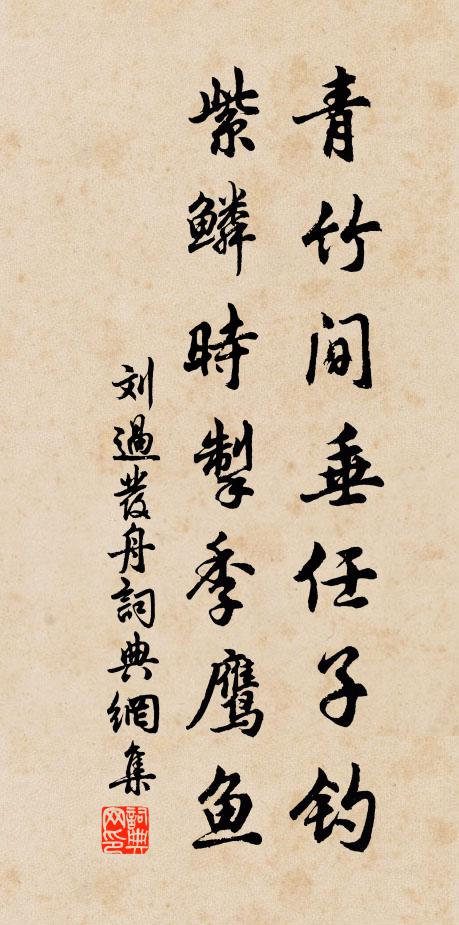 青竹间垂任子钓
紫鳞時掣季鹰鱼
刘過發舟詞典網集
詞典网印